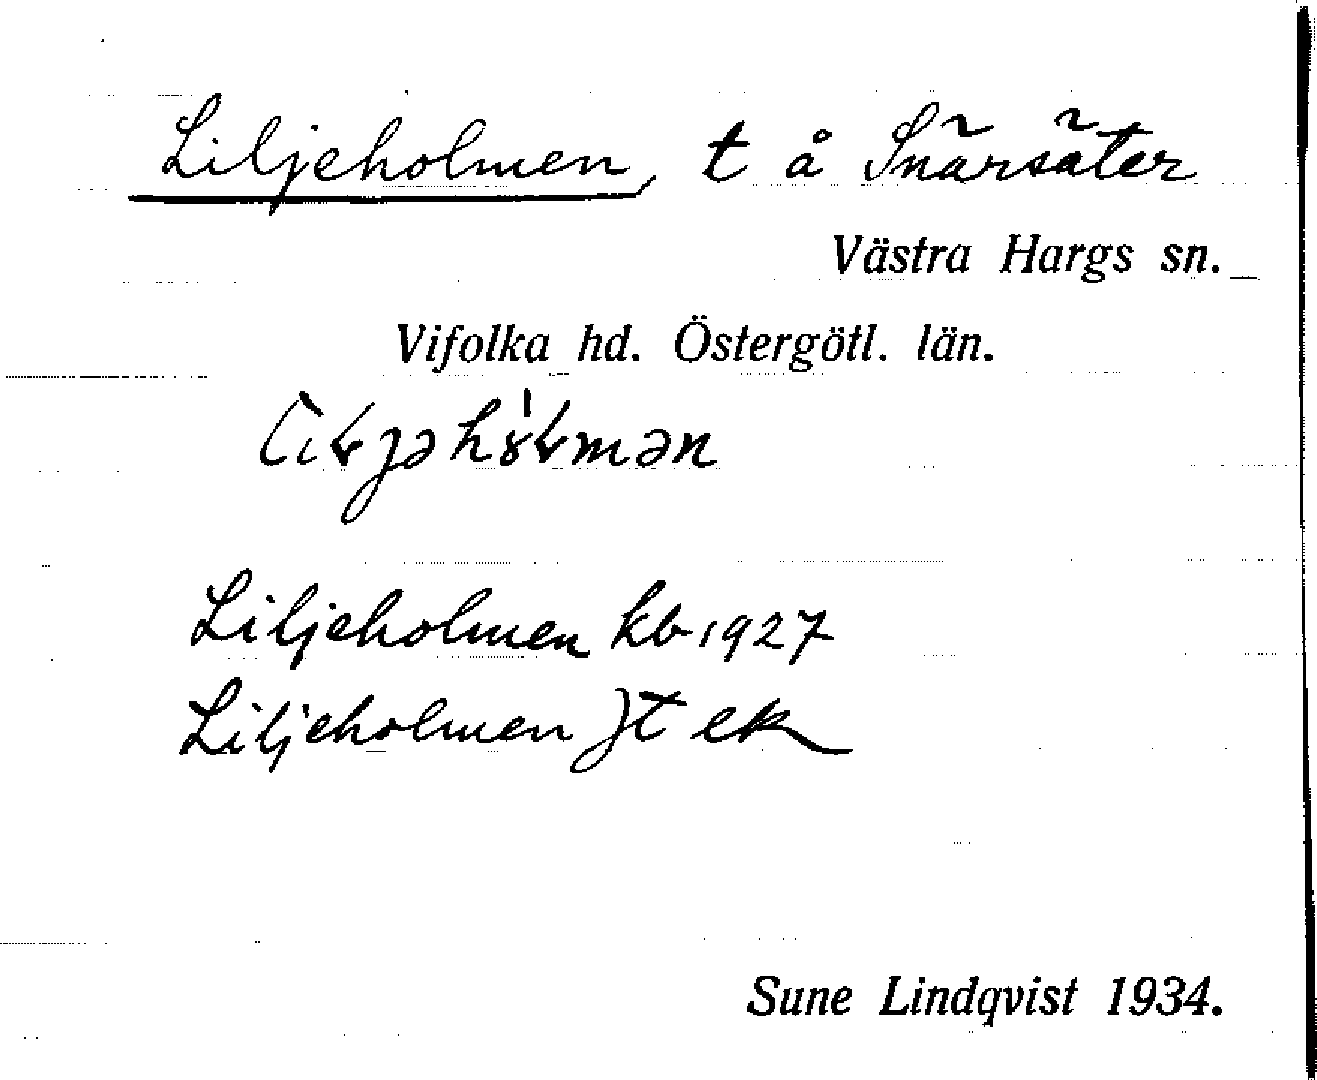 Liljeholmen, t å Snärsäter
Västra Hargs sn.
Vifolka hd. Östergötl. län.
Liljeholmen kb 1927
Liljeholmen Jt ek
Sune Lindqvist 1934.